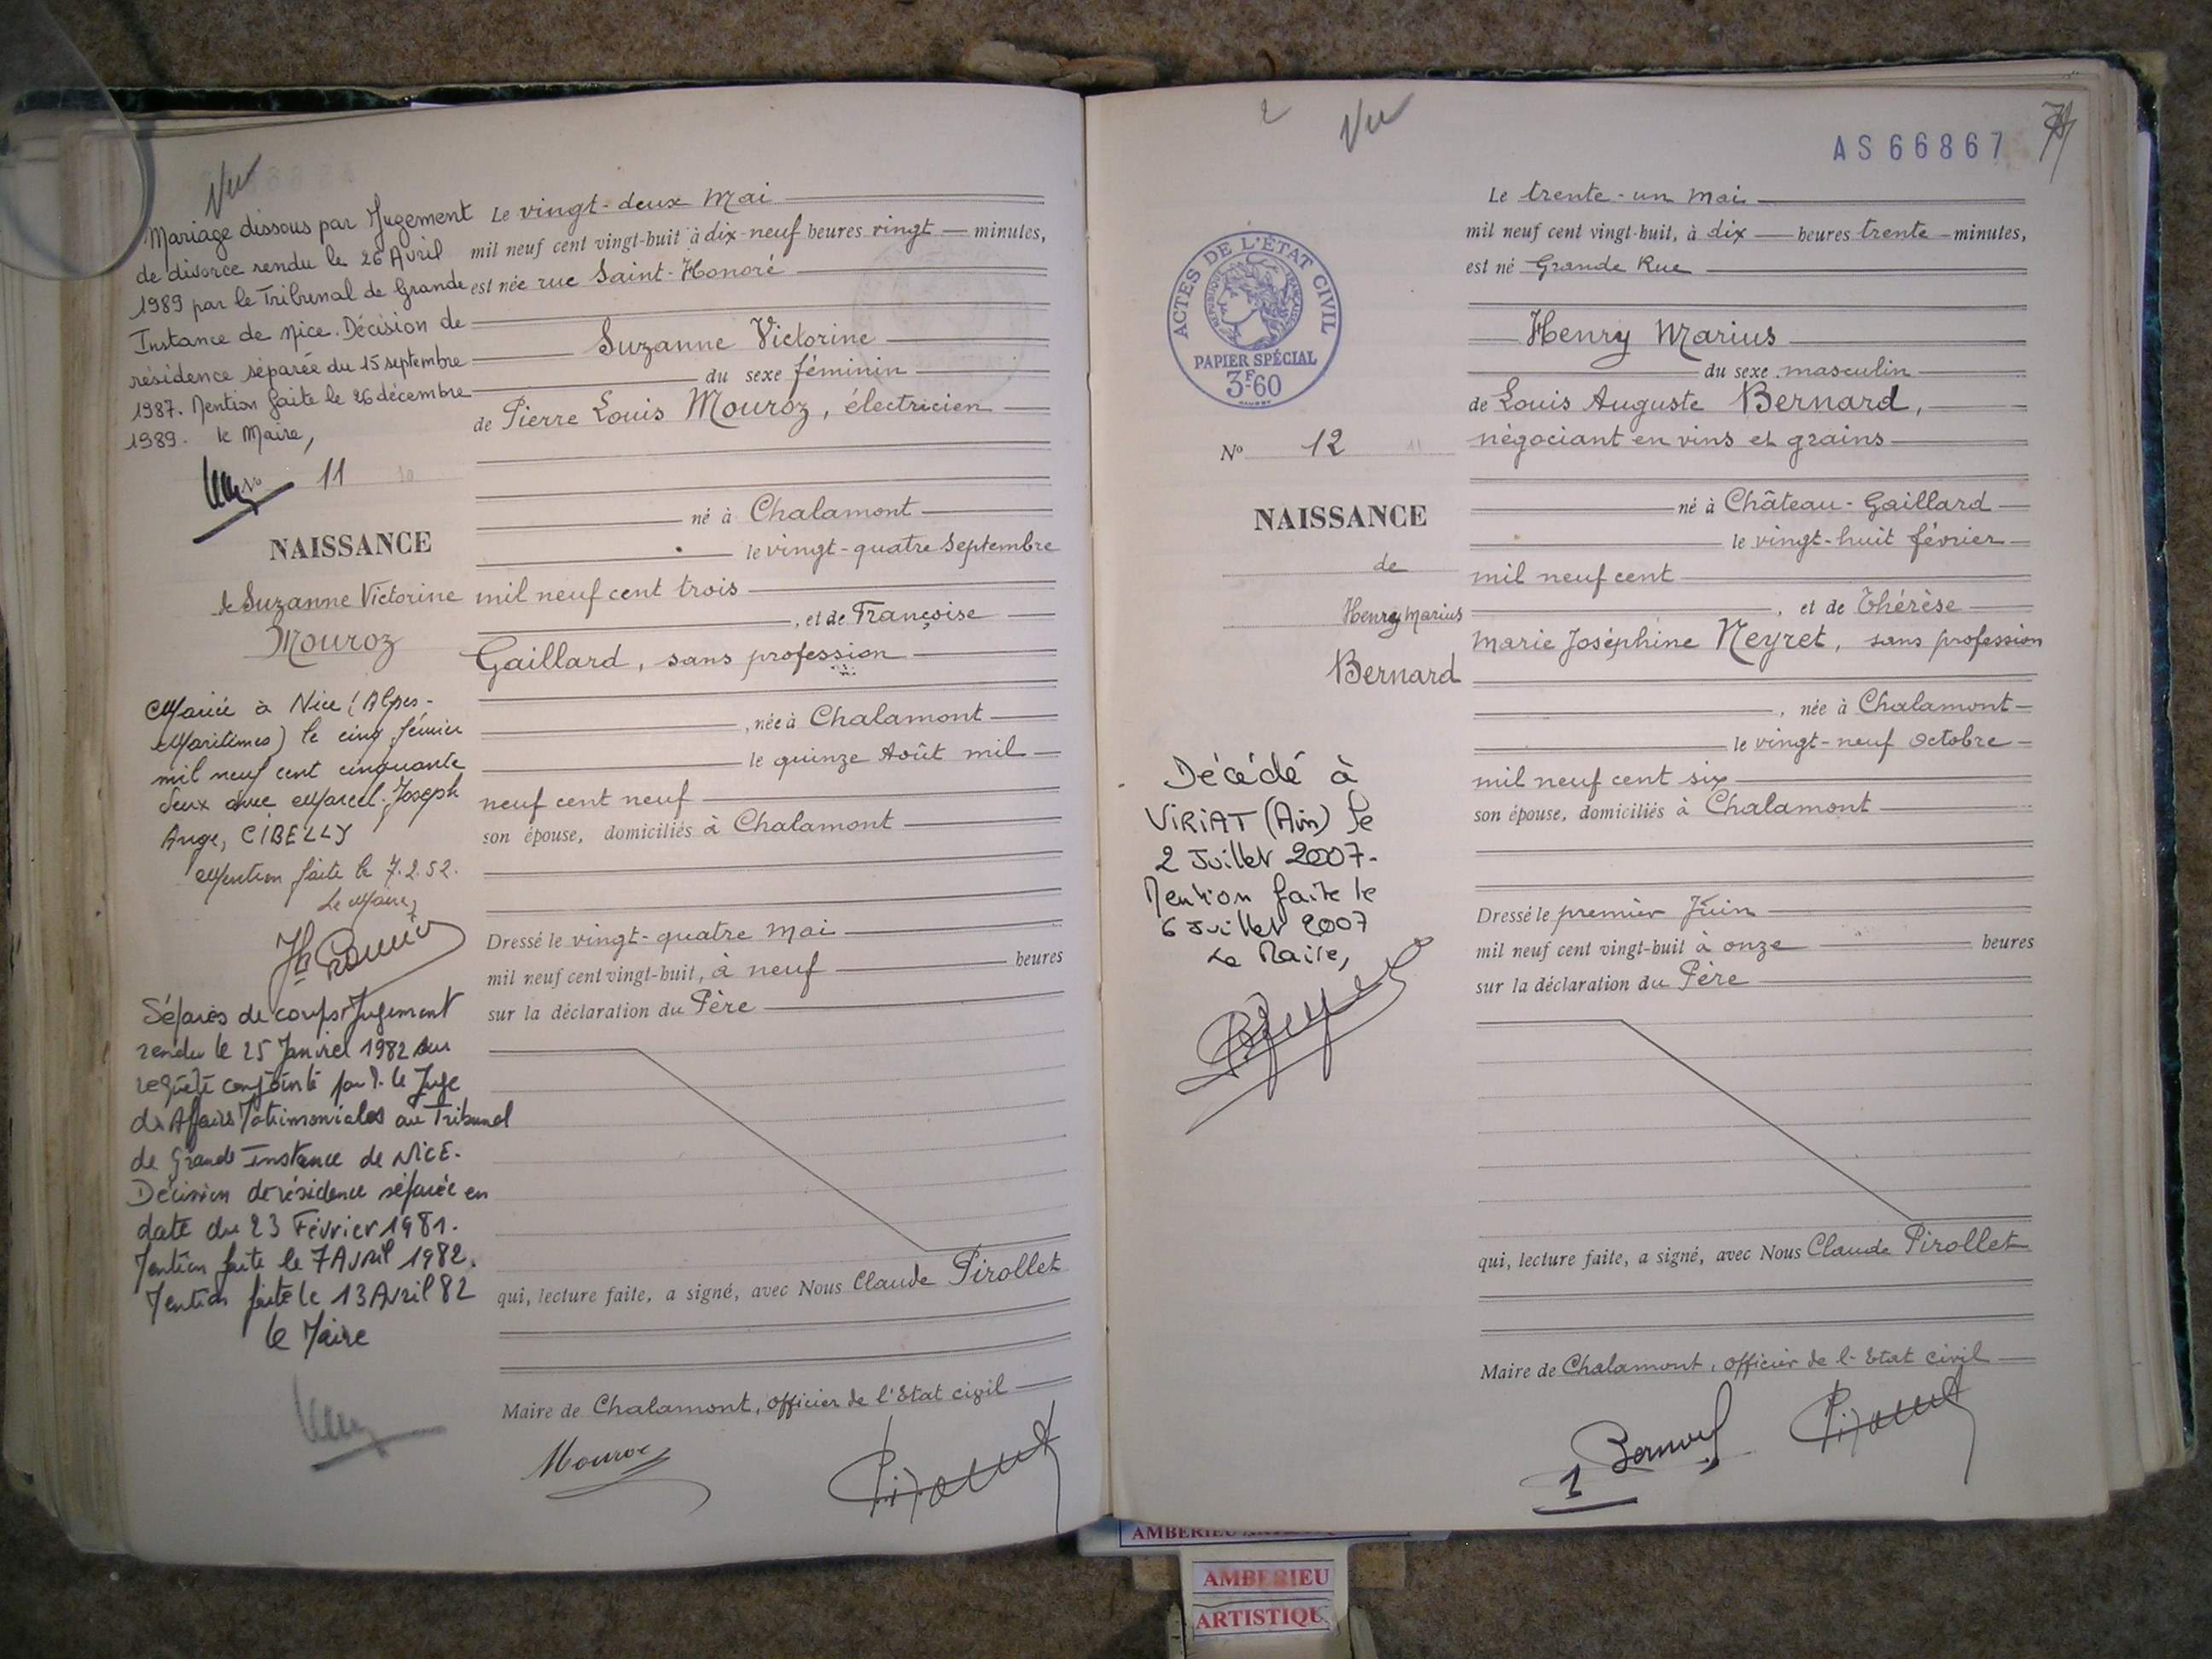 Vu
Mariage dissous par Jugement
de divorce rendu le 26 Avril
1989 par le Tribunal de Grande
Instance de Nice. Décision de
résidence séparée du 15 septembre
1987. Mention faite le 26 décembre
1989. le Maire,
No 11
NAISSANCE
de Suzanne Victorine
Mouroz
Mariée à Nice (Alpes-
Maritimes) le cinq février
mil neuf cent cinquante
deux avec Marcel Joseph
Ange, CIBELLY
Mention faite le 7.2.52.
Le Maire,
Séparés de corps Jugement
rendu le 25 Janvier 1982 sur
requête conjointe par le Juge
des Affaires Matrimoniales au Tribunal
de Grande Instance de NICE.
Décision de résidence séparée en
date du 23 Février 1981.
Mention faite le 7 Avril 1982.
Mention faite le 13 Avril 82
le Maire
Le vingt-deux Mai
mil neuf cent vingt-huit à dix-neuf heures vingt minutes,
est née rue Saint-Honoré
Suzanne Victorine
du sexe féminin
de Pierre Louis Mouroz, électricien
né à Chalamont
le vingt-quatre Septembre
mil neuf cent trois
, et de Françoise
Gaillard, sans profession
, née à Chalamont
le quinze Août mil
neuf cent neuf
son épouse, domiciliés à Chalamont
Dressé le vingt-quatre Mai
mil neuf cent vingt-huit, à neuf heures
sur la déclaration du Père
qui, lecture faite, a signé, avec Nous Claude Pirollet
Maire de Chalamont, officier de l'Etat civil
Mouroz
Vu
AS66867
ACTES DE L'ÉTAT CIVIL
RÉPUBLIQUE FRANÇAISE
PAPIER SPÉCIAL
3F60
No 12
NAISSANCE
de
Henry Marius
Bernard
Décédé à
VIRIAT (Ain) le
2 Juillet 2007.
Mention faite le
6 Juillet 2007
Le Maire,
Le trente-un Mai
mil neuf cent vingt-huit, à dix heures trente minutes,
est né Grande Rue
Henry Marius
du sexe masculin
de Louis Auguste Bernard,
négociant en vins et grains
né à Château-Gaillard
le vingt-huit février
mil neuf cent
, et de Thérèse
Marie Joséphine Neyret, sans profession
, née à Chalamont
le vingt-neuf Octobre
mil neuf cent six
son épouse, domiciliés à Chalamont
Dressé le premier Juin
mil neuf cent vingt-huit à onze heures
sur la déclaration du Père
qui, lecture faite, a signé, avec Nous Claude Pirollet
Maire de Chalamont, officier de l'Etat civil
Bernard
AMBERIEU
ARTISTIQU